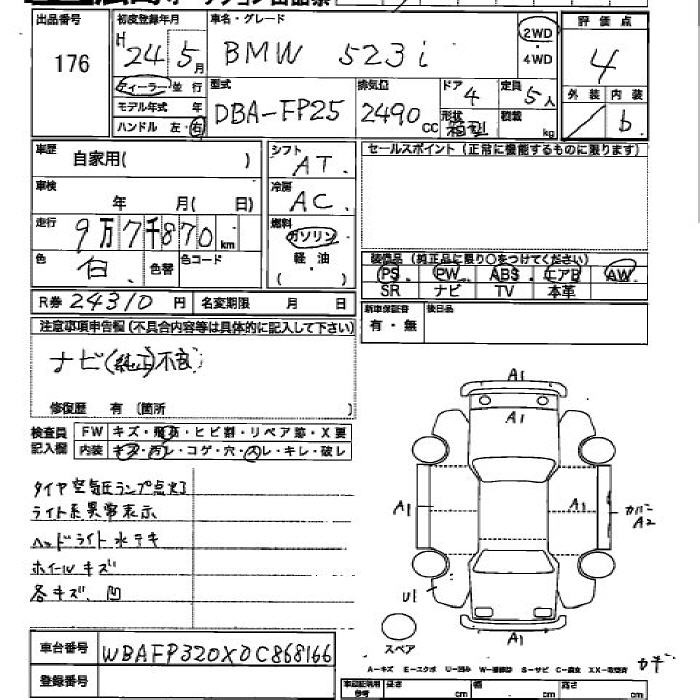 出品番号 初度登録年月 車名・グレード 評価点
176 H 24年 5月 BMW 523i 2WD・4WD 4
ディーラー・並行 型式 排気位 ドア 定員 外装 内装
モデル年式 年 DBA-FP25 2490CC 4 5人 / b
ハンドル 左・右 形状 箱型 積載 kg
車歴 シフト セールスポイント (正常に機能するものに限ります)
自家用( ) AT.
車検 冷房
年 月( 日) AC.
走行 燃料
9万7千870km ガソリン
色 色替 色コード 軽油 装備品 (純正品に限り○をつけてください)
白. ( ) PS PW ABS エアB AW
SR ナビ TV 本革
R券 24310円 名変期限 月 日 新車保証書 後日品
有・無
注意事項申告欄(不具合内容等は具体的に記入して下さい)
ナビ(純正)不良
修復歴 有 (箇所 )
検査員 FW キズ・飛石・ヒビ割・リペア跡・X要
記入欄 内装 キズ・汚レ・コゲ・穴・スレ・キレ・破レ
タイヤ空気圧ランプ点灯
ライト系異常表示
ヘッドライト水テキ
ホイールキズ
各キズ、凹
A1
A1
A1 A1 カバー A2
U1
A1
スペア
車台番号 WBAFP320X0C868166
A-キズ E-エクボ U-凹み S-サビ C-腐食 XX-取替済
登録番号 長さ cm 幅 cm 高さ cm